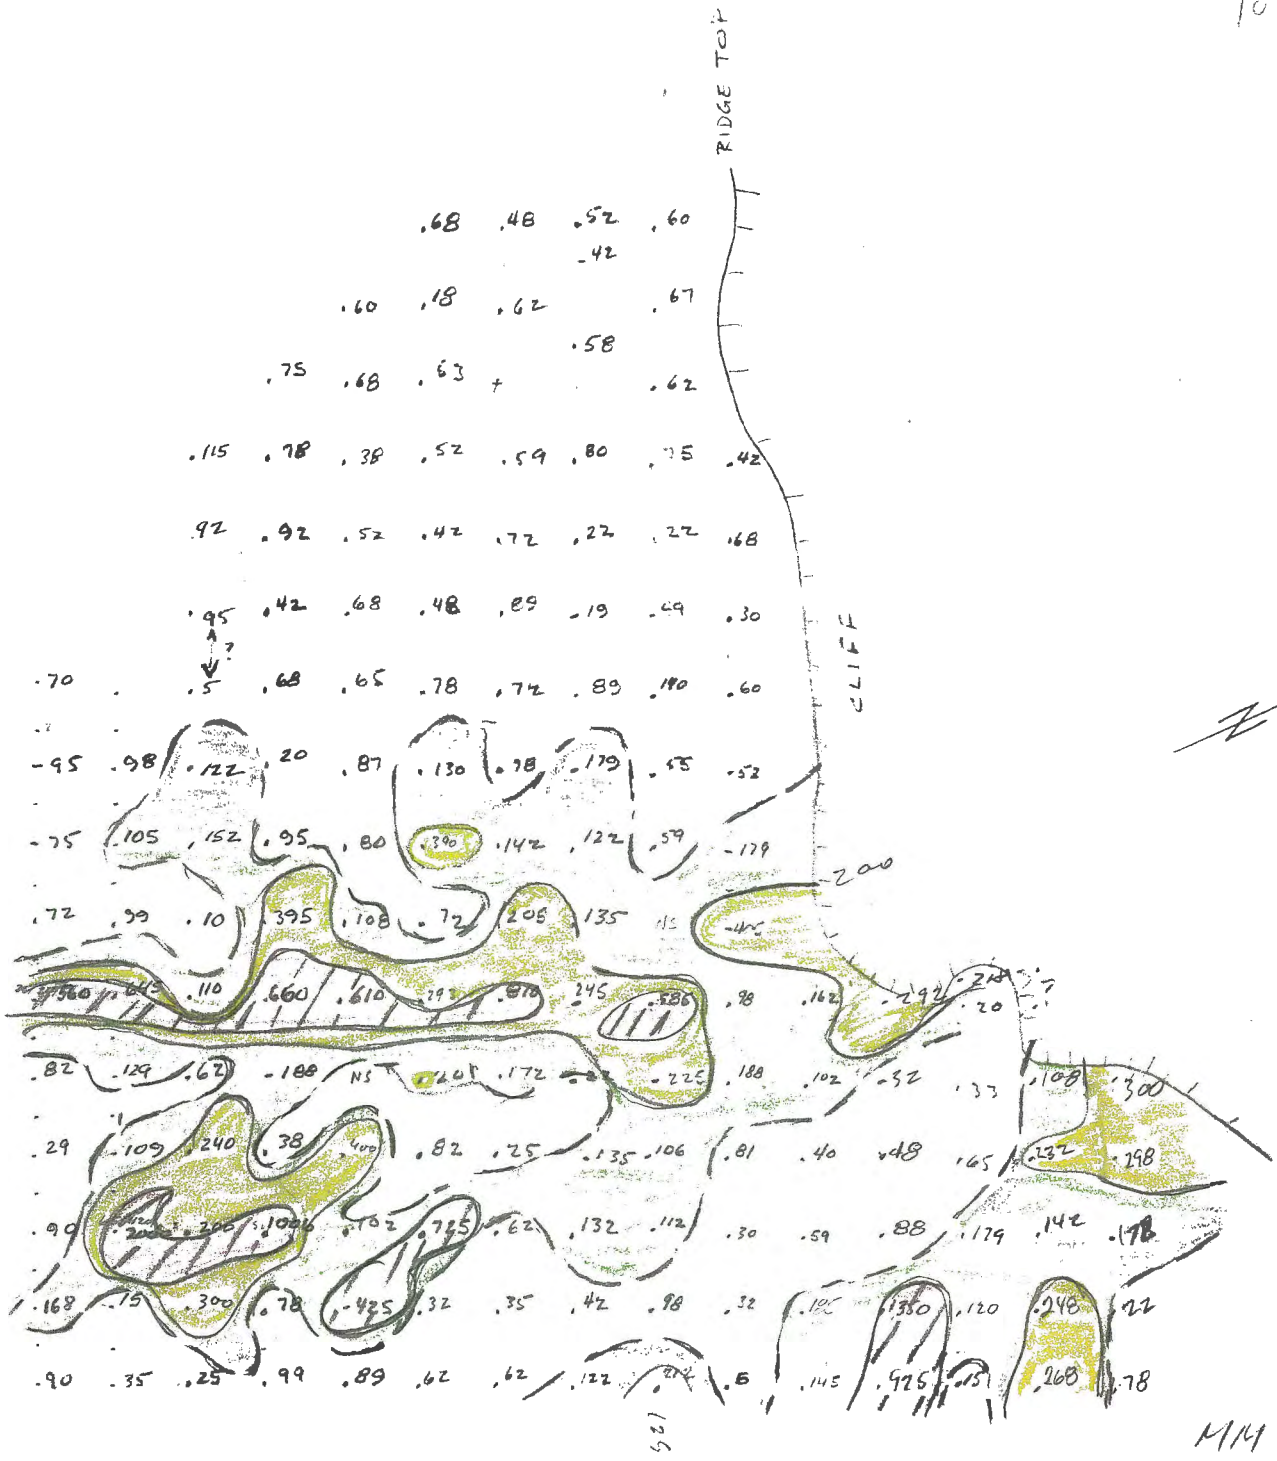 10
RIDGE TOP
.68 .48 .52 .60
-42
.60 .18 .62 .67
.58
.75 .68 .53 + .62
.115 .78 .38 .52 .59 .80 .75 .42
.92 .92 .52 .42 .72 .22 .22 .68
.95 .42 .68 .48 .89 .19 .49 .30
?
CLIFF
.70 .5 .68 .65 .78 .72 .89 .60
-95 .98 .122 .20 .87 .130 .98 .179 .55 -52
-75 .105 .152 .95 .80 .390 .142 .122 .59 -179
200
.72 .99 .10 395 .108 .72 205 135 NS
560 645 .110 .660 .610 .292 .810 .245 .586 .98 .162 .292 .20
?
.82 .129 .62 -188 NS .172 -225 .188 .102 -32 .33 .108 .300
.29 -109 .240 .38 400 .82 .25 .135 .106 .81 .40 .48 .65 .232 .298
.90 .200 .102 .725 .62 .132 .112 .30 .59 .88 .179 .142 .178
.168 .15 .300 .78 -425 .32 .35 .42 .98 .32 .105 1350 .120 .248 .22
.90 .35 .25 .99 .89 .62 .62 .122 .5 .145 .925 .15 .268 .78
125
MM